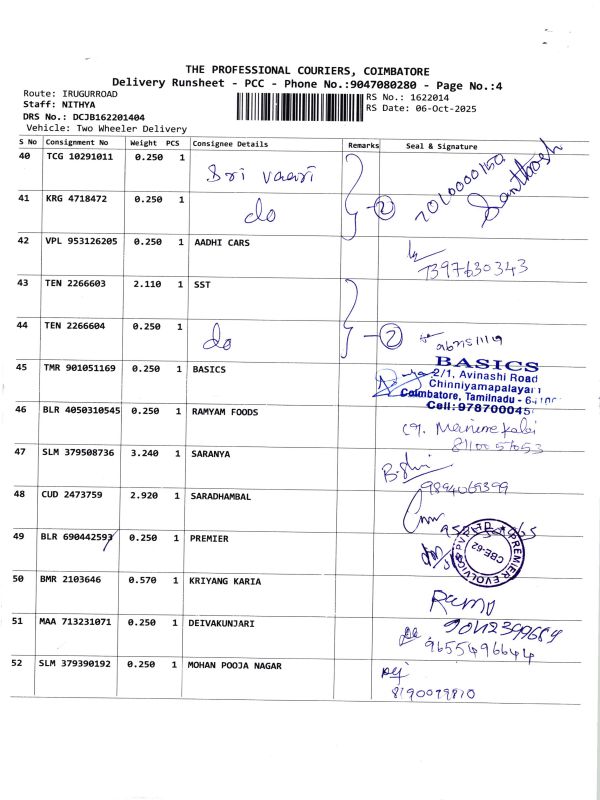 THE PROFESSIONAL COURIERS, COIMBATORE
Delivery Runsheet - PCC - Phone No.:9047080280 - Page No.:4
Route: IRUGURROAD
Staff: NITHYA
DRS No.: DCJB162201404
Vehicle: Two Wheeler Delivery
RS No.: 1622014
RS Date: 06-Oct-2025
S No Consignment No Weight PCS Consignee Details Remarks Seal & Signature
40 TCG 10291011 0.250 1 Sri vaari Santhosh
41 KRG 4718472 0.250 1 do 2 7010000150
42 VPL 953126205 0.250 1 AADHI CARS 7397630343
43 TEN 2266603 2.110 1 SST
44 TEN 2266604 0.250 1 do 2
45 TMR 901051169 0.250 1 BASICS BASICS
2/1, Avinashi Road
Chinniyamapalayam
Coimbatore, Tamilnadu - 641
Cell:978700045
46 BLR 4050310545 0.250 1 RAMYAM FOODS
8110057053
47 SLM 379508736 3.240 1 SARANYA
9894069399
48 CUD 2473759 2.920 1 SARADHAMBAL
49 BLR 690442593 0.250 1 PREMIER PREMIER EVOLVICS PVT LTD CBE-62
50 BMR 2103646 0.570 1 KRIYANG KARIA
51 MAA 713231071 0.250 1 DEIVAKUNJARI
9655496644
52 SLM 379390192 0.250 1 MOHAN POOJA NAGAR
8190079870